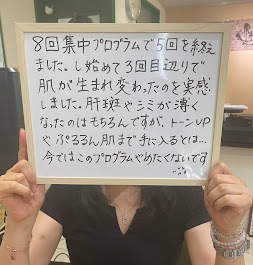 8回集中プログラムで5回を終え
ました。し始めて3回目辺りで
肌が生まれ変わったのを実感
しました。肝斑やシミが薄く
なったのはもちろんですが、トーンUP
やぷるるん肌まで手に入るとは…
今ではこのプログラムやめたくないです